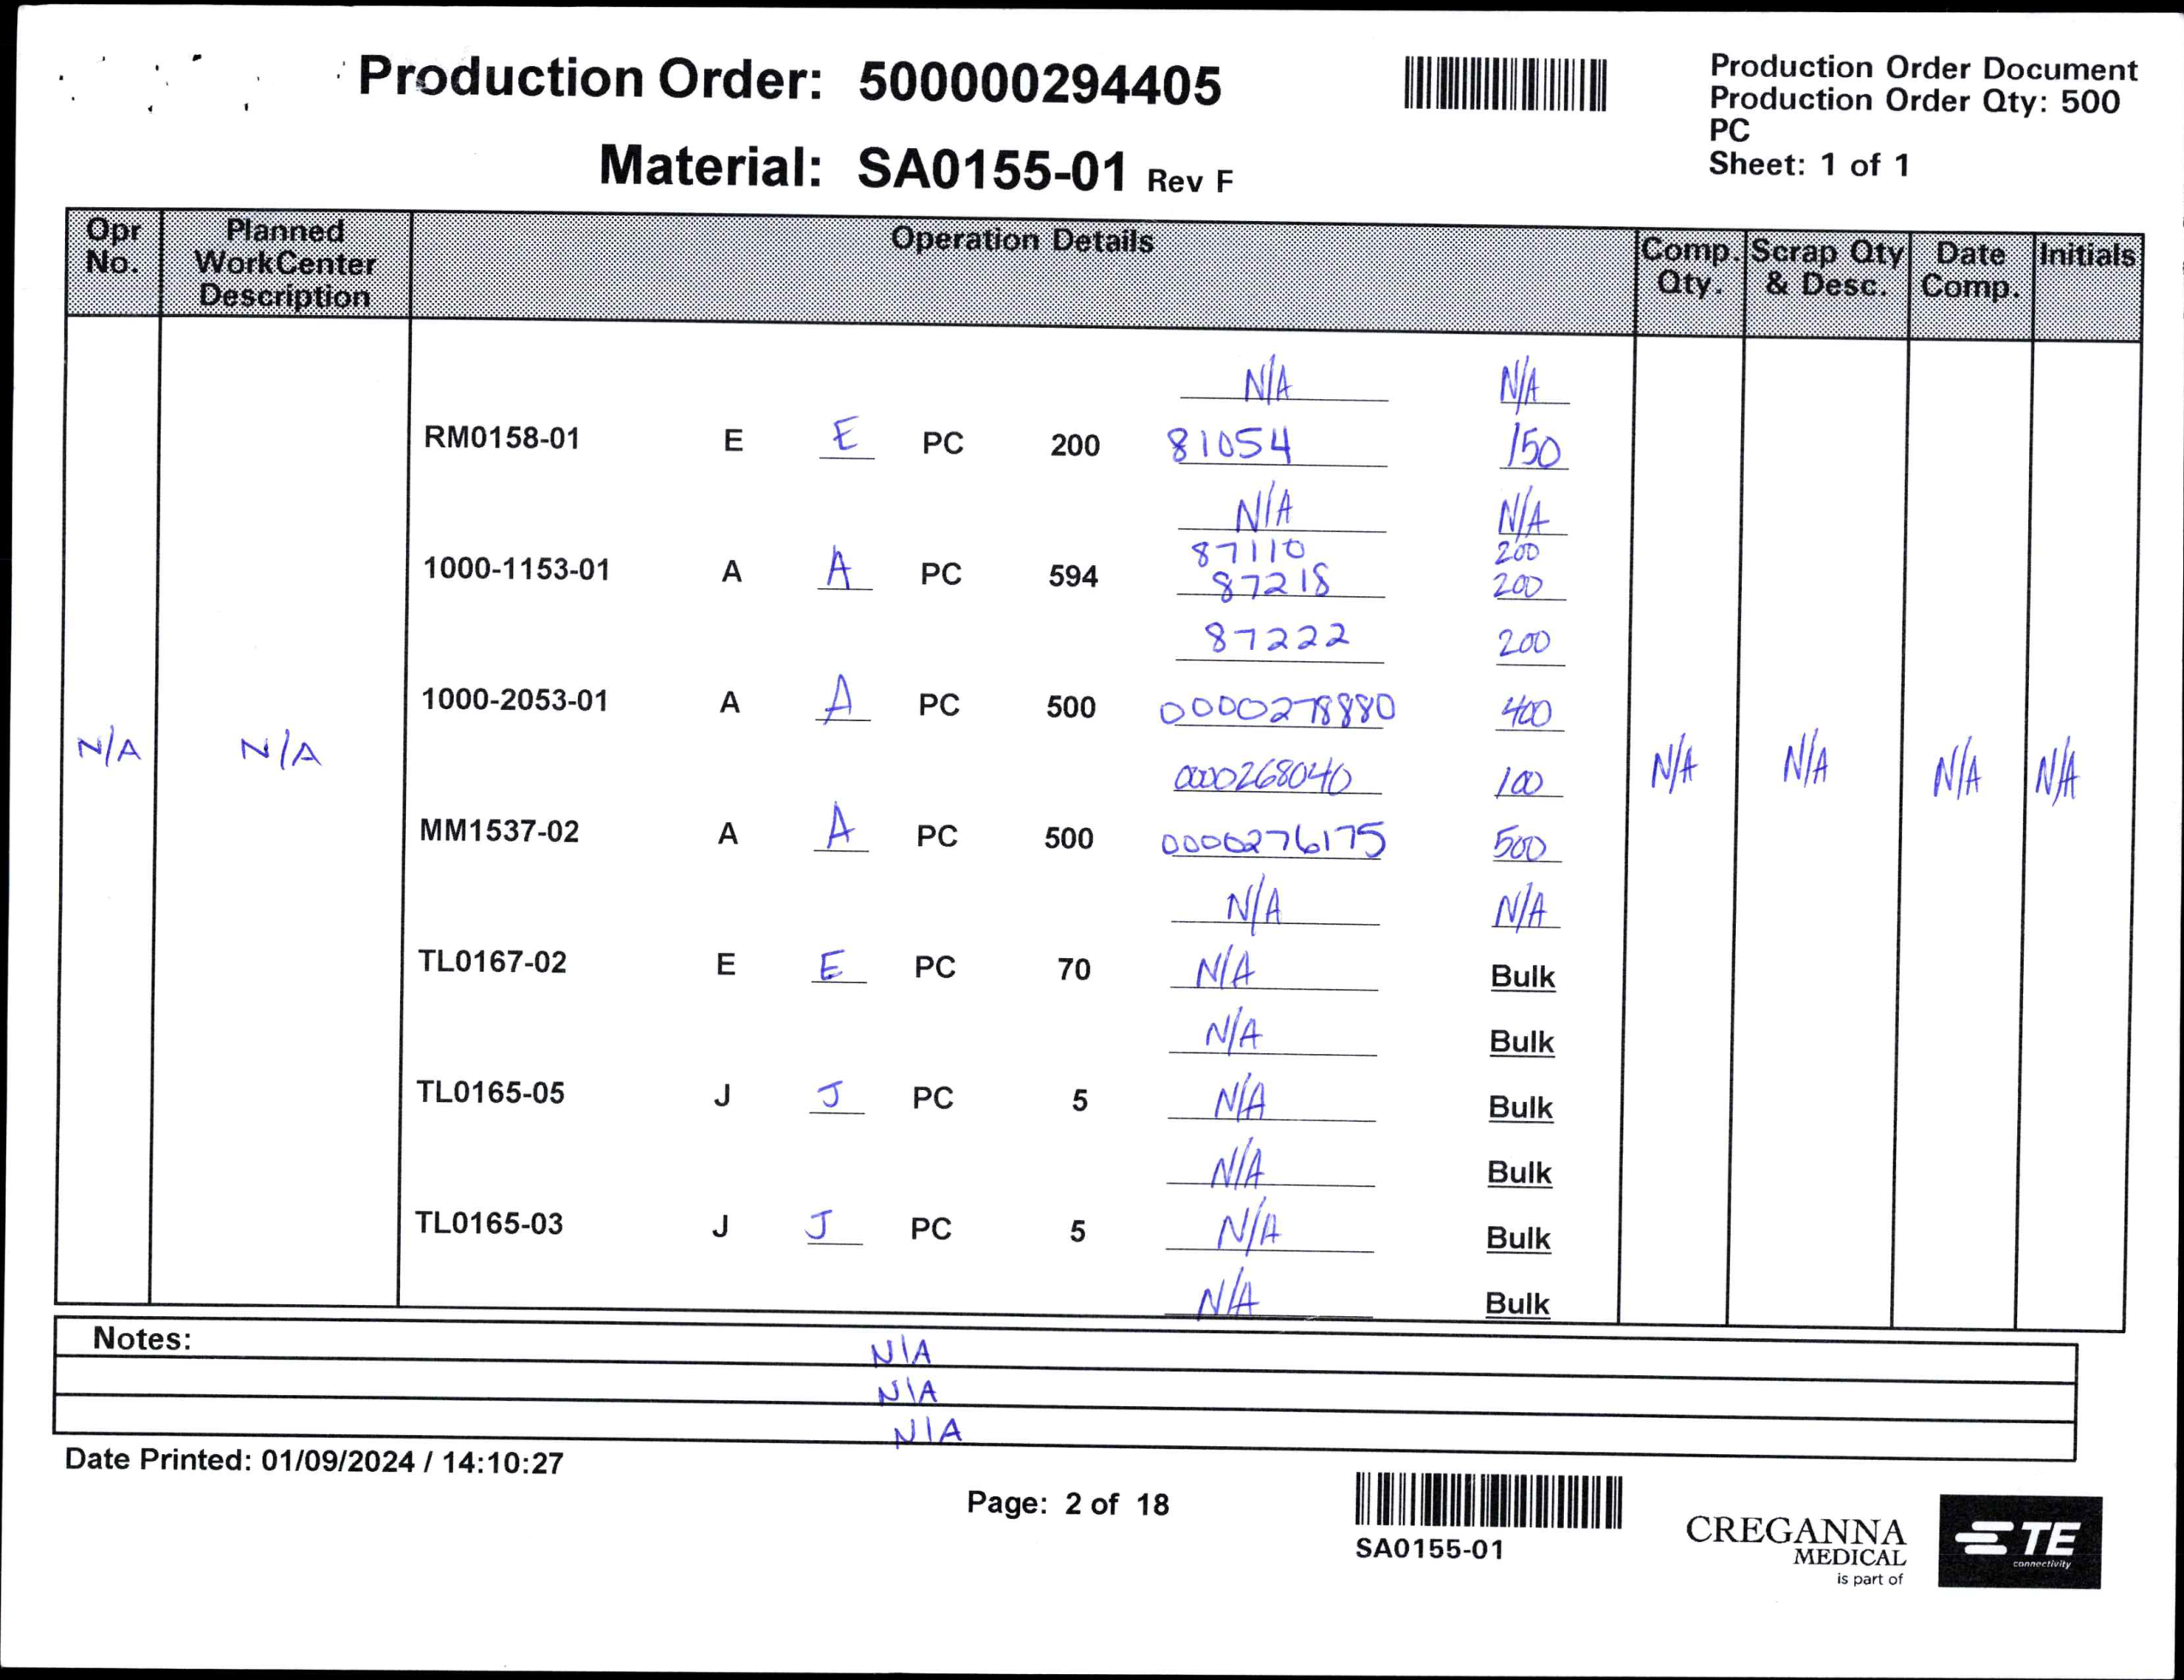 Production Order: 500000294405
Production Order Document
Production Order Qty: 500
PC
Sheet: 1 of 1
Material: SA0155-01 Rev F
Opr No. Planned WorkCenter Description Operation Details Comp. Qty. Scrap Qty & Desc. Date Comp. Initials
N/A N/A
RM0158-01 E E PC 200 81054 150
N/A N/A
87110 200
1000-1153-01 A A PC 594 87218 200
87222 200
1000-2053-01 A A PC 500 0000278880 400
N/A N/A N/A N/A N/A N/A
0000268040 100
MM1537-02 A A PC 500 0000276175 500
N/A N/A
TL0167-02 E E PC 70 N/A Bulk
N/A Bulk
TL0165-05 J J PC 5 N/A Bulk
N/A Bulk
TL0165-03 J J PC 5 N/A Bulk
N/A Bulk
Notes: N/A
N/A
N/A
Date Printed: 01/09/2024 / 14:10:27
Page: 2 of 18
SA0155-01
CREGANNA
MEDICAL
is part of
TE
connectivity